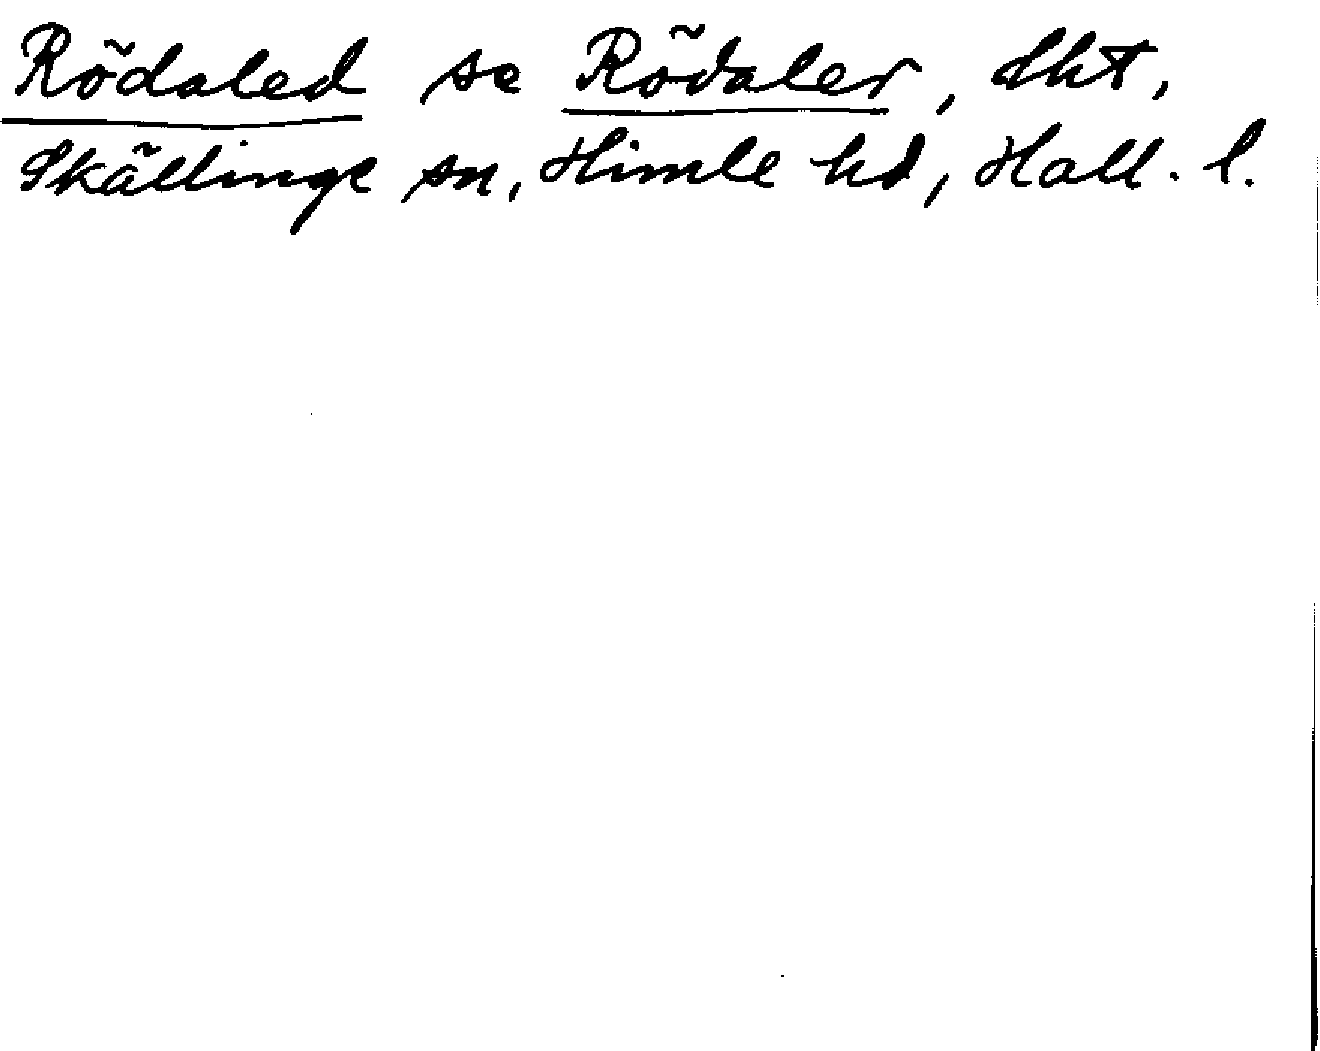 Rödaled se Rödaler, Skt,
Skällinge sn, Himle hd, Hall. l.